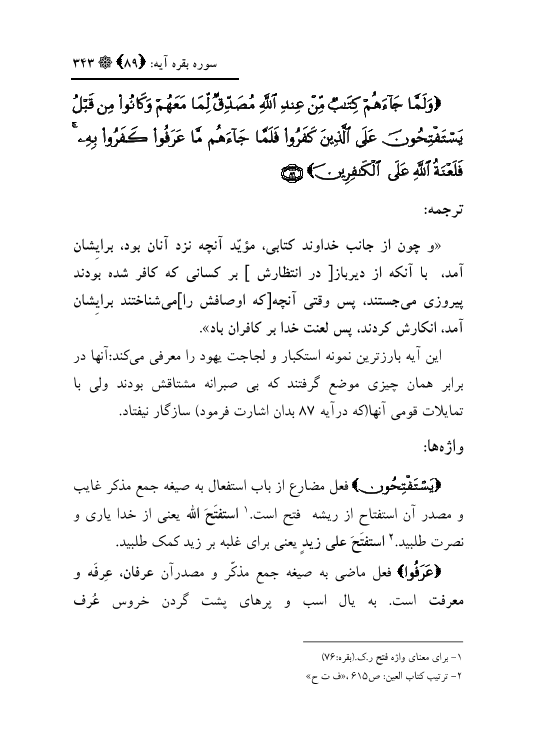 سوره بقره آیه: ﴿۸۹﴾ ۳۴۳
﴿وَلَمَّا جَآءَهُمْ كِتَٰبٌ مِّنْ عِندِ ٱللَّهِ مُصَدِّقٌ لِّمَا مَعَهُمْ وَكَانُوا۟ مِن قَبْلُ
يَسْتَفْتِحُونَ عَلَى ٱلَّذِينَ كَفَرُوا۟ فَلَمَّا جَآءَهُم مَّا عَرَفُوا۟ كَفَرُوا۟ بِهِۦ ۚ
فَلَعْنَةُ ٱللَّهِ عَلَى ٱلْكَٰفِرِينَ﴾ ۸۹
ترجمه:
«و چون از جانب خداوند کتابی، مؤیّد آنچه نزد آنان بود، برایِشان
آمد، با آنکه از دیرباز[ در انتظارش ] بر کسانی که کافر شده بودند
پیروزی می‌جستند، پس وقتی آنچه[که اوصافش را]می‌شناختند برایِشان
آمد، انکارش کردند، پس لعنت خدا بر کافران باد».
این آیه بارزترین نمونه استکبار و لجاجت یهود را معرفی می‌کند:آنها در
برابر همان چیزی موضع گرفتند که بی صبرانه مشتاقش بودند ولی با
تمایلات قومی آنها(که درآیه ۸۷ بدان اشارت فرمود) سازگار نیفتاد.
واژه‌ها:
﴿يَسْتَفْتِحُونَ﴾ فعل مضارع از باب استفعال به صیغه جمع مذکر غایب
و مصدر آن استفتاح از ریشه فتح است.۱ استفتَحَ الله یعنی از خدا یاری و
نصرت طلبید.۲ استفتَحَ علی زیدٍ یعنی برای غلبه بر زید کمک طلبید.
﴿عَرَفُوا﴾ فعل ماضی به صیغه جمع مذکّر و مصدرآن عرفان، عِرفَه و
معرفت است. به یال اسب و پرهای پشت گردن خروس عُرف
۱- برای معنای واژه فتح ر.ک.(بقره:۷۶)
۲- ترتیب کتاب العین: ص۶۱۵ ،«ف ت ح»